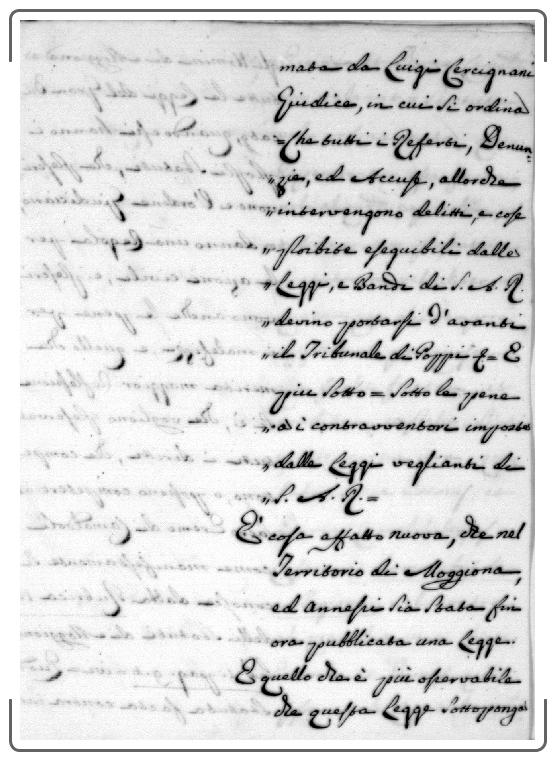 mata da Luigi Cercignani
Giudice, in cui si ordina
= Che tutti i Referti, Denun=
„ zie, ed Accuse, allorche
„ intervengono delitti, e cose
„ proibite eseguibili dalle
„ Leggi, e Bandi di S. A. R.
„ devino portarsi d'avanti
„ il Tribunale di Poppi &= E
piu sotto = Sotto le pene
„ a i contravventori imposte
„ dalle Leggi veglianti di
„ S. A. R. =
E' cosa affatto nuova, che nel
Territorio di Moggiona,
ed Annessi sia stata fin
ora pubblicata una Legge.
E quello che è più osservabile
che questa Legge sottoponga